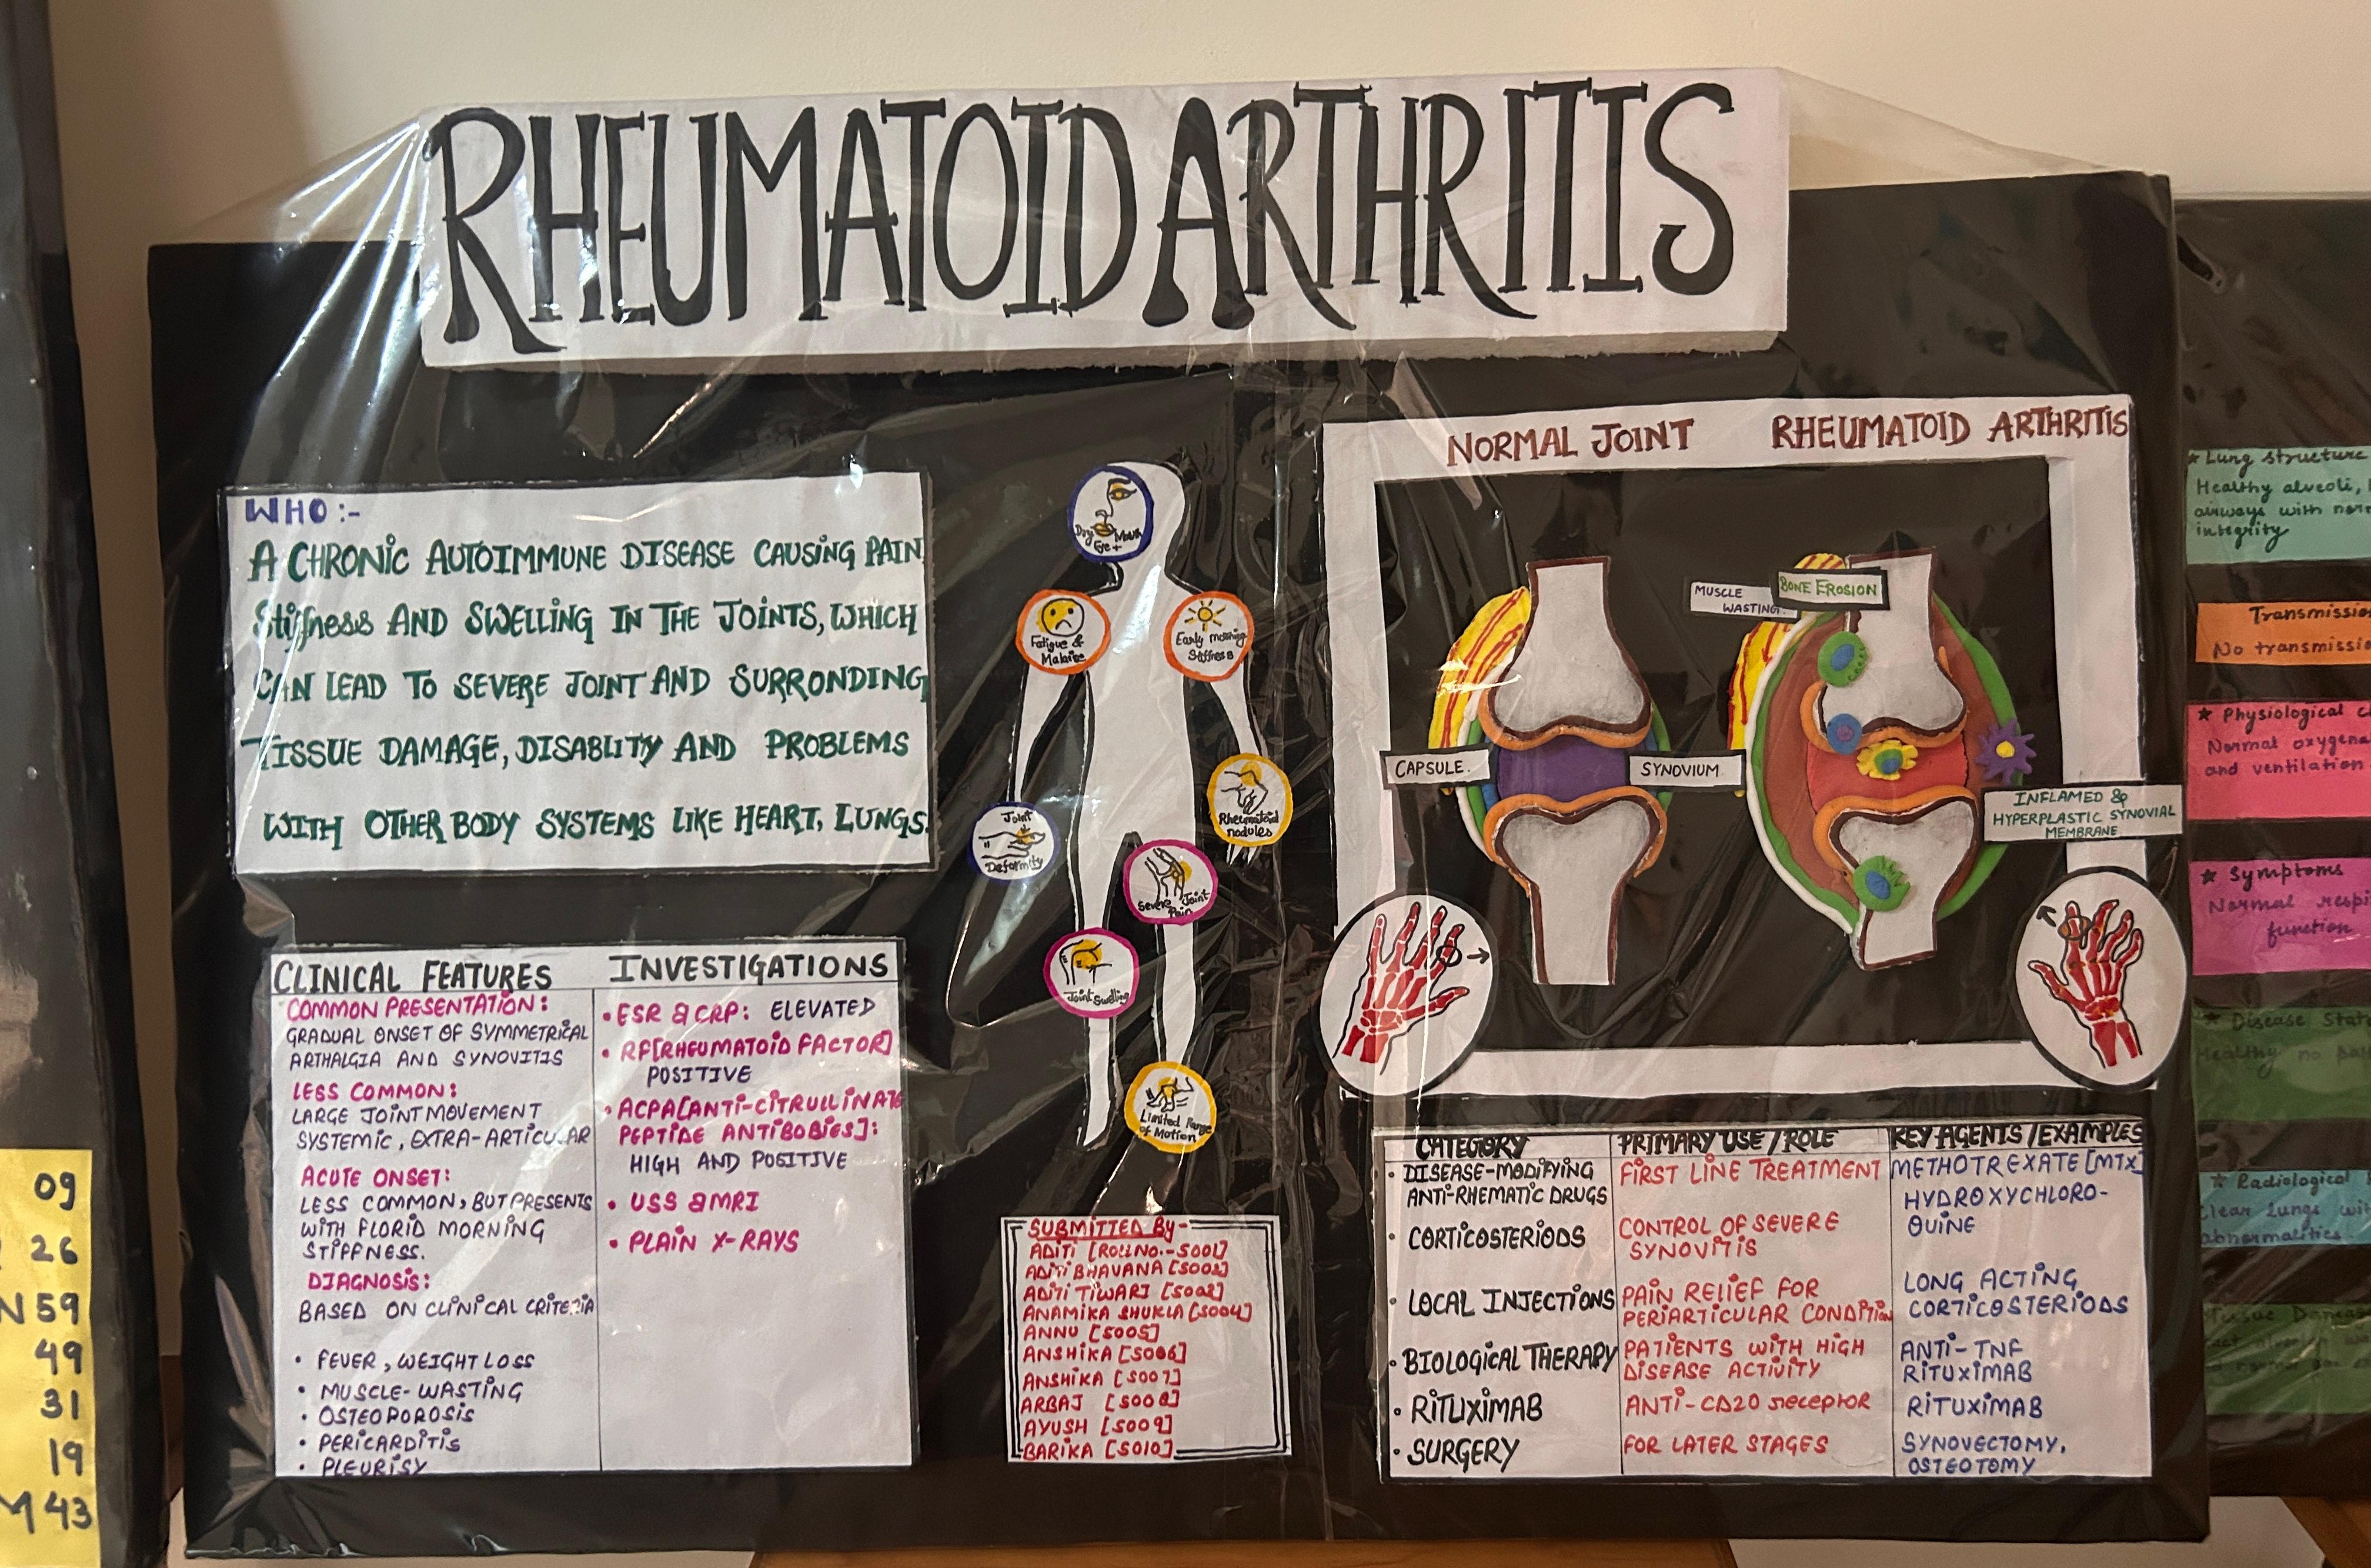 RHEUMATOID ARTHRITIS
WHO :-
A CHRONIC AUTOIMMUNE DISEASE CAUSING PAIN
Stiffness AND SWELLING IN THE JOINTS, WHICH
CAN LEAD TO SEVERE JOINT AND SURRONDING
TISSUE DAMAGE, DISABLITY AND PROBLEMS
WITH OTHER BODY SYSTEMS LIKE HEART, LUNGS.
CLINICAL FEATURES
COMMON PRESENTATION:
GRADUAL ONSET OF SYMMETRICAL
ARTHALGIA AND SYNOVITIS
LESS COMMON:
LARGE JOINT MOVEMENT
SYSTEMIC, EXTRA-ARTICULAR
ACUTE ONSET:
LESS COMMON, BUT PRESENTS
WITH FLORID MORNING
STIFFNESS.
DIAGNOSIS:
BASED ON CLINICAL CRITERIA
• FEVER, WEIGHT LOSS
• MUSCLE-WASTING
• OSTEOPOROSIS
• PERICARDITIS
• PLEURISY
INVESTIGATIONS
• ESR & CRP: ELEVATED
• RF[RHEUMATOID FACTOR]
POSITIVE
• ACPA[ANTI-CITRULLINATE
PEPTIDE ANTIBOBIES]:
HIGH AND POSITIVE
• USS & MRI
• PLAIN X-RAYS
Dry Mouth
Eye +
Fatigue &
Malaise
Early morning
Stiffness
Joint
Deformity
Rheumatoid
nodules
Severe Joint
Pain
Joint Swelling
Limited Range
of Motion
SUBMITTED By-
ADITI [ROLLNO.-5001]
ADITI BHAVANA [5002]
ADITI TIWARI [5003]
ANAMIKA SHUKLA [5004]
ANNU [5005]
ANSHIKA [5006]
ANSHIKA [5007]
ARBAJ [5008]
AYUSH [5009]
BARIKA [5010]
NORMAL JOINT RHEUMATOID ARTHRITIS
MUSCLE
WASTING.
BONE EROSION
CAPSULE.
SYNOVIUM
INFLAMED &
HYPERPLASTIC SYNOVIAL
MEMBRANE
CATEGORY PRIMARY USE/ROLE KEY AGENTS/EXAMPLES
• DISEASE-MODIFYING
ANTI-RHEMATIC DRUGS
FIRST LINE TREATMENT
METHOTREXATE[MTX]
HYDROXYCHLORO-
QUINE
• CORTICOSTERIODS
CONTROL OF SEVERE
SYNOVITIS
• LOCAL INJECTIONS
PAIN RELIEF FOR
PERIARTICULAR CONDITION
LONG ACTING
CORTICOSTERIODS
• BIOLOGICAL THERAPY
PATIENTS WITH HIGH
DISEASE ACTIVITY
ANTI-TNF
RITUXIMAB
• RITUXIMAB
ANTI-CD20 receptor
RITUXIMAB
• SURGERY
FOR LATER STAGES
SYNOVECTOMY,
OSTEOTOMY
09
26
N 59
49
31
19
43
★ Lung structure
Healthy alveoli,
airways with
integrity
Transmission
No transmission
★ Physiological
Normal oxygena
and ventilation
★ Symptoms
Normal respi
function
★ Disease Stat
Healthy no
★ Radiological
Clear Lungs wit
abnormalities.